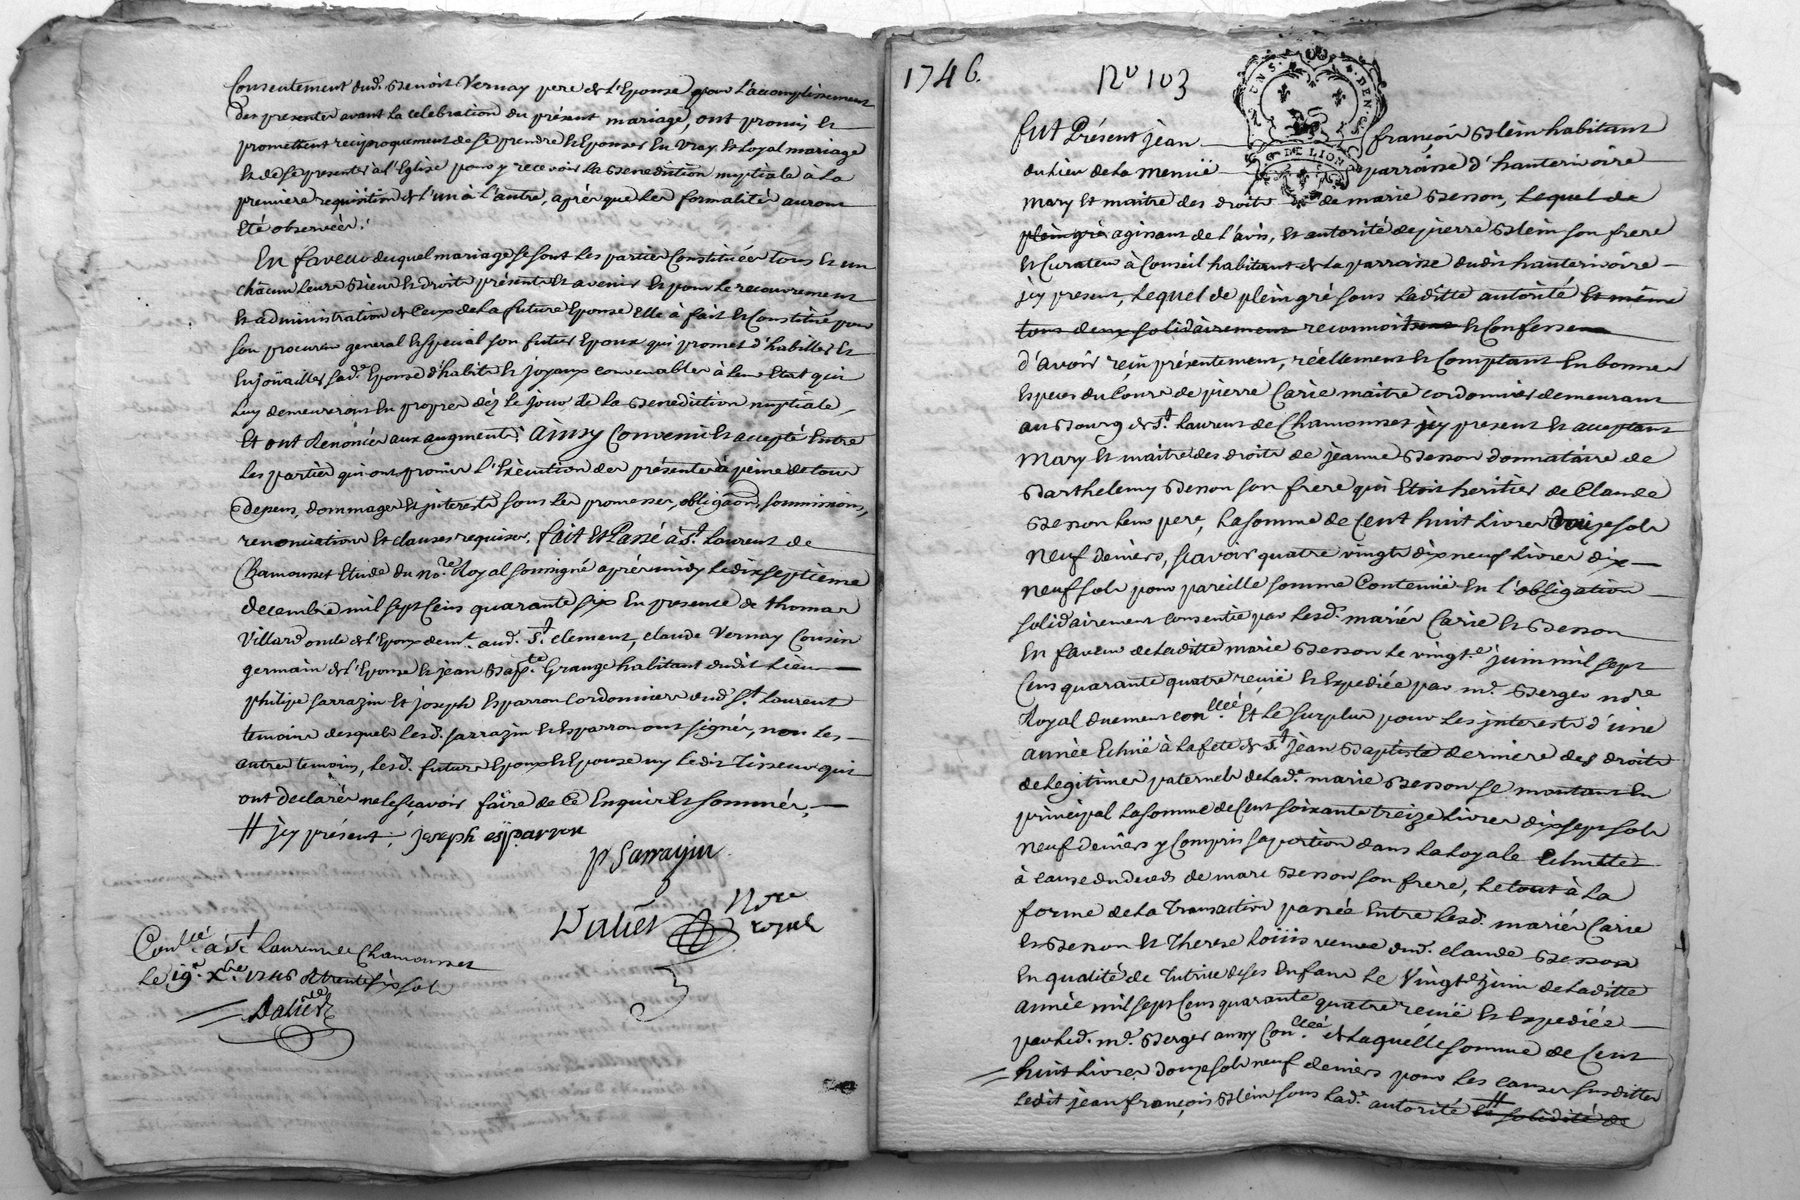 Consentement dud. Benoit Vernay pere de l'Epouse pour l'accomplissement
des presentes avant la celebration du présent mariage, ont promis et
promettent reciproquement de se prendre et Epouser En vray et Loyal mariage
et de se presenter à l'Eglise pour y recevoir la Benediction nuptiale à La
premiere requisition de l'un à L'autre, après que les formalités auront
Eté observées.
En faveur duquel mariage se sont les parties Constituées tous et un
chacun leurs Biens et droits présents et avenir et pour le recouvrement
et administration de Ceux de La future Epouse Elle à fait et Constitué pour
son procureur general et special son futur Epoux qui promet d'habiller et
Enjoüailler sad.e Epouse d'habits et joyaux convenables à leur Etat qui
Luy demeureront En propres dez Le jour de La Benediction nuptiale,
Et ont Renoncés aux augments. Ainsy Convenu et accepté Entre
Les parties qui ont promis L'Exécution des présentes à peine de tous
Depens, dommages et interests sous Les promesses, obligaõns, soumissions,
renonciations et clauses requises. fait et Passé à St. Laurent de
Chamousset Etude du no.re Royal soussigné après midy Le dix septieme
decembre mil sept Cens quarante six En presence de thomas
Villard oncle de l'Epoux dem.t aud. St. clement, claude Vernay Cousin
germain de l'Epouse et jean Bap.te Grange habitant dudit Lieu
philipe sarrazin et joseph Esparron Cordonniers dud. St. Laurent
temoins desquels Lesd. sarrazin et Esparron ont signés, non Les
autres temoins, Lesd. futurs Epoux et Epouse ny Ledit Tisseur qui
ont declarés ne le sçavoir faire de Ce Enquis et sommés,
# jcy présent. joseph esparron
p Sarrazin
Daliés No.re
royal
Con.llé à St Laurent de Chamousset
Le 19.e Xbre 1746 R trente six sols
Daliés
1746.
N.o 103
GENS . . DE LION
fut Présent jean françois Blein habitant
du Lieu de La Menuë parroisse d'hauterivoire
Mary et maitre des droits de marie Besson, Lequel de
plein gré agissant de L'avis, et autorité de pierre Blein son frere
et Curateur à Conseil habitant de La parroisse dudit hauterivoire
jcy present, Lequel de plein gré sous Laditte autorité et même
tous deux solidairement reconnoit et Confesse
d'avoir reçu présentement, réellement et Comptant En bonnes
Especes du Cours de pierre Carie maitre cordonnier demeurant
au Bourg de St. Laurent de Chamousset jcy present et acceptant
Mary et maitre des droits de jeanne Besson donnataire de
Barthelemy Besson son frere qui Etoit heritier de Claude
Besson Leur pere, La somme de Cent huit Livres douze sols
neuf deniers, sçavoir quatre vingts dix neuf Livres dix
neuf sols pour pareille somme Contenuë En L'obligation
solidairement consentie par Lesd. mariés Carie et Besson
En faveur de Laditte marie Besson Le vingt.e juin mil sept
Cens quarante quatre reçuë et Expediée par m.e Berger no.re
Royal duement con.llée. Et Le surplus pour Les interests d'une
année Echuë à La fete de St. jean Baptiste derniere des droits
de Legitimes paternels de Lad.e marie Besson se montant En
principal La somme de Cent soixante treize Livres dix sept sols
neuf deniers y Compris sa portion dans La Loyale Echutte
à Cause du deceds de marc Besson son frere, Le tout à La
forme de La Transaction passée Entre Lesd. mariés Carie
et Besson et Therese Loüis veuve dud. claude Besson
En qualité de Tutrice de ses Enfans Le Vingt.e juin de Laditte
année mil sept Cens quarante quatre reçuë et Expediée
par Led. m.e Berger aussy Con.llée de Laquelle somme de Cent
huit Livres douze sols neuf deniers pour Les causes susdittes
Ledit jean françois Blein sous Lad.e autorité # la solidité de